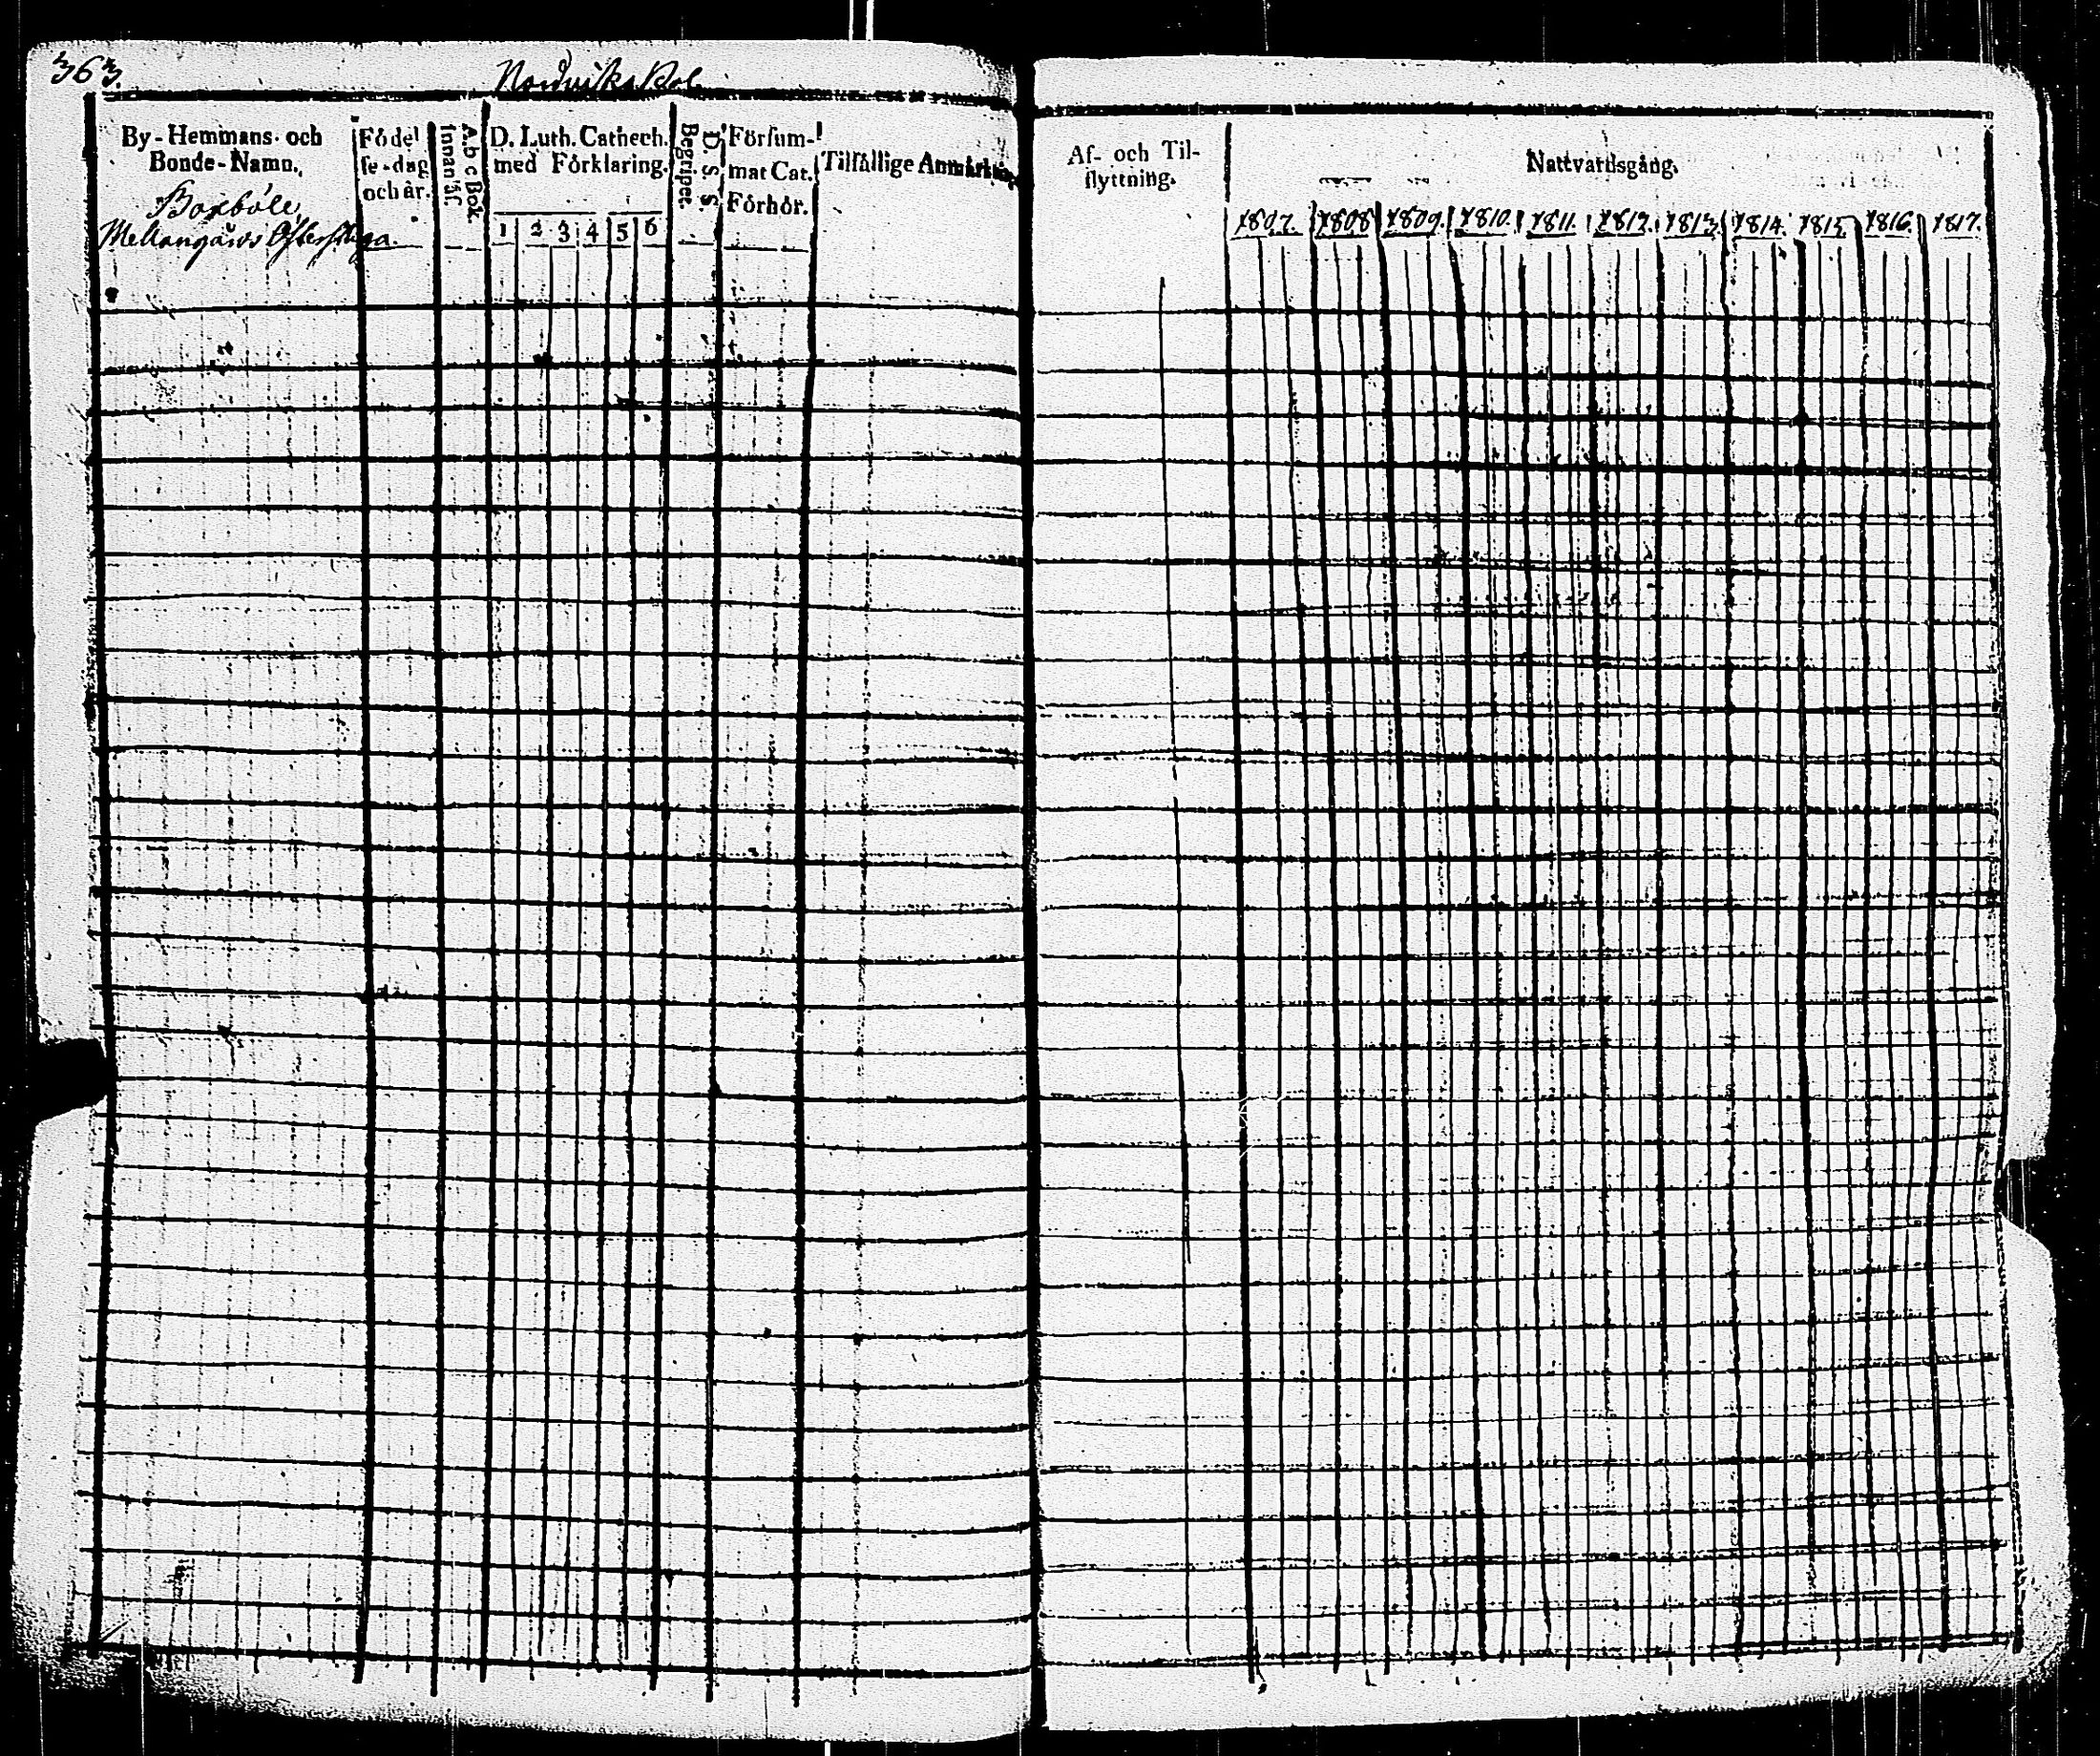 363.
By-Hemmans- och
Bonde-Namn.
Boxböle
Mellangårds
Födel
se-dag
och år.
A.b c Bok.
Innanläs.
D. Luth. Cathech.
med Förklaring.
1 2 3 4 5 6
D. S. S.
Begriper.
Försum-
mat Cat.
Förhör.
Tilfällige Anmärkn.
Af- och Til-
flyttning.
Nattvardsgång.
1807. 1808 1809. 1810. 1811. 1812. 1813. 1814. 1815. 1816. 1817.